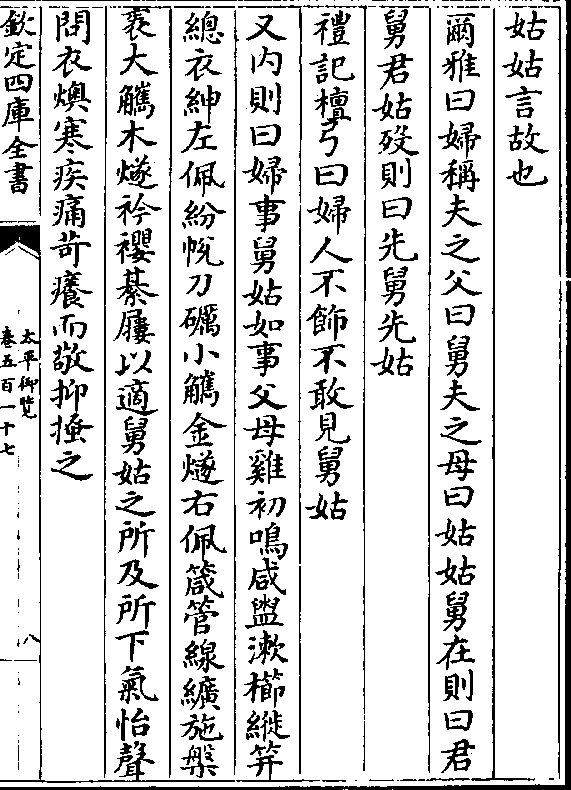 姑姑言故也
爾雅曰婦稱夫之父曰舅夫之母曰姑姑舅在則曰君
舅君姑殁則曰先舅先姑
禮記檀弓曰婦人不飾不敢見舅姑
又内則曰婦事舅姑如事父母雞初鳴咸盥漱櫛縰笄
總衣紳左佩紛帨刀礪小觿金燧右佩箴管線纊施槃
袠大觿木燧衿纓綦屨以適舅姑之所及所下氣怡聲
問衣燠寒疾痛苛癢而敬抑搔之
欽定四庫全書
太平御覽
卷五百一十七
八